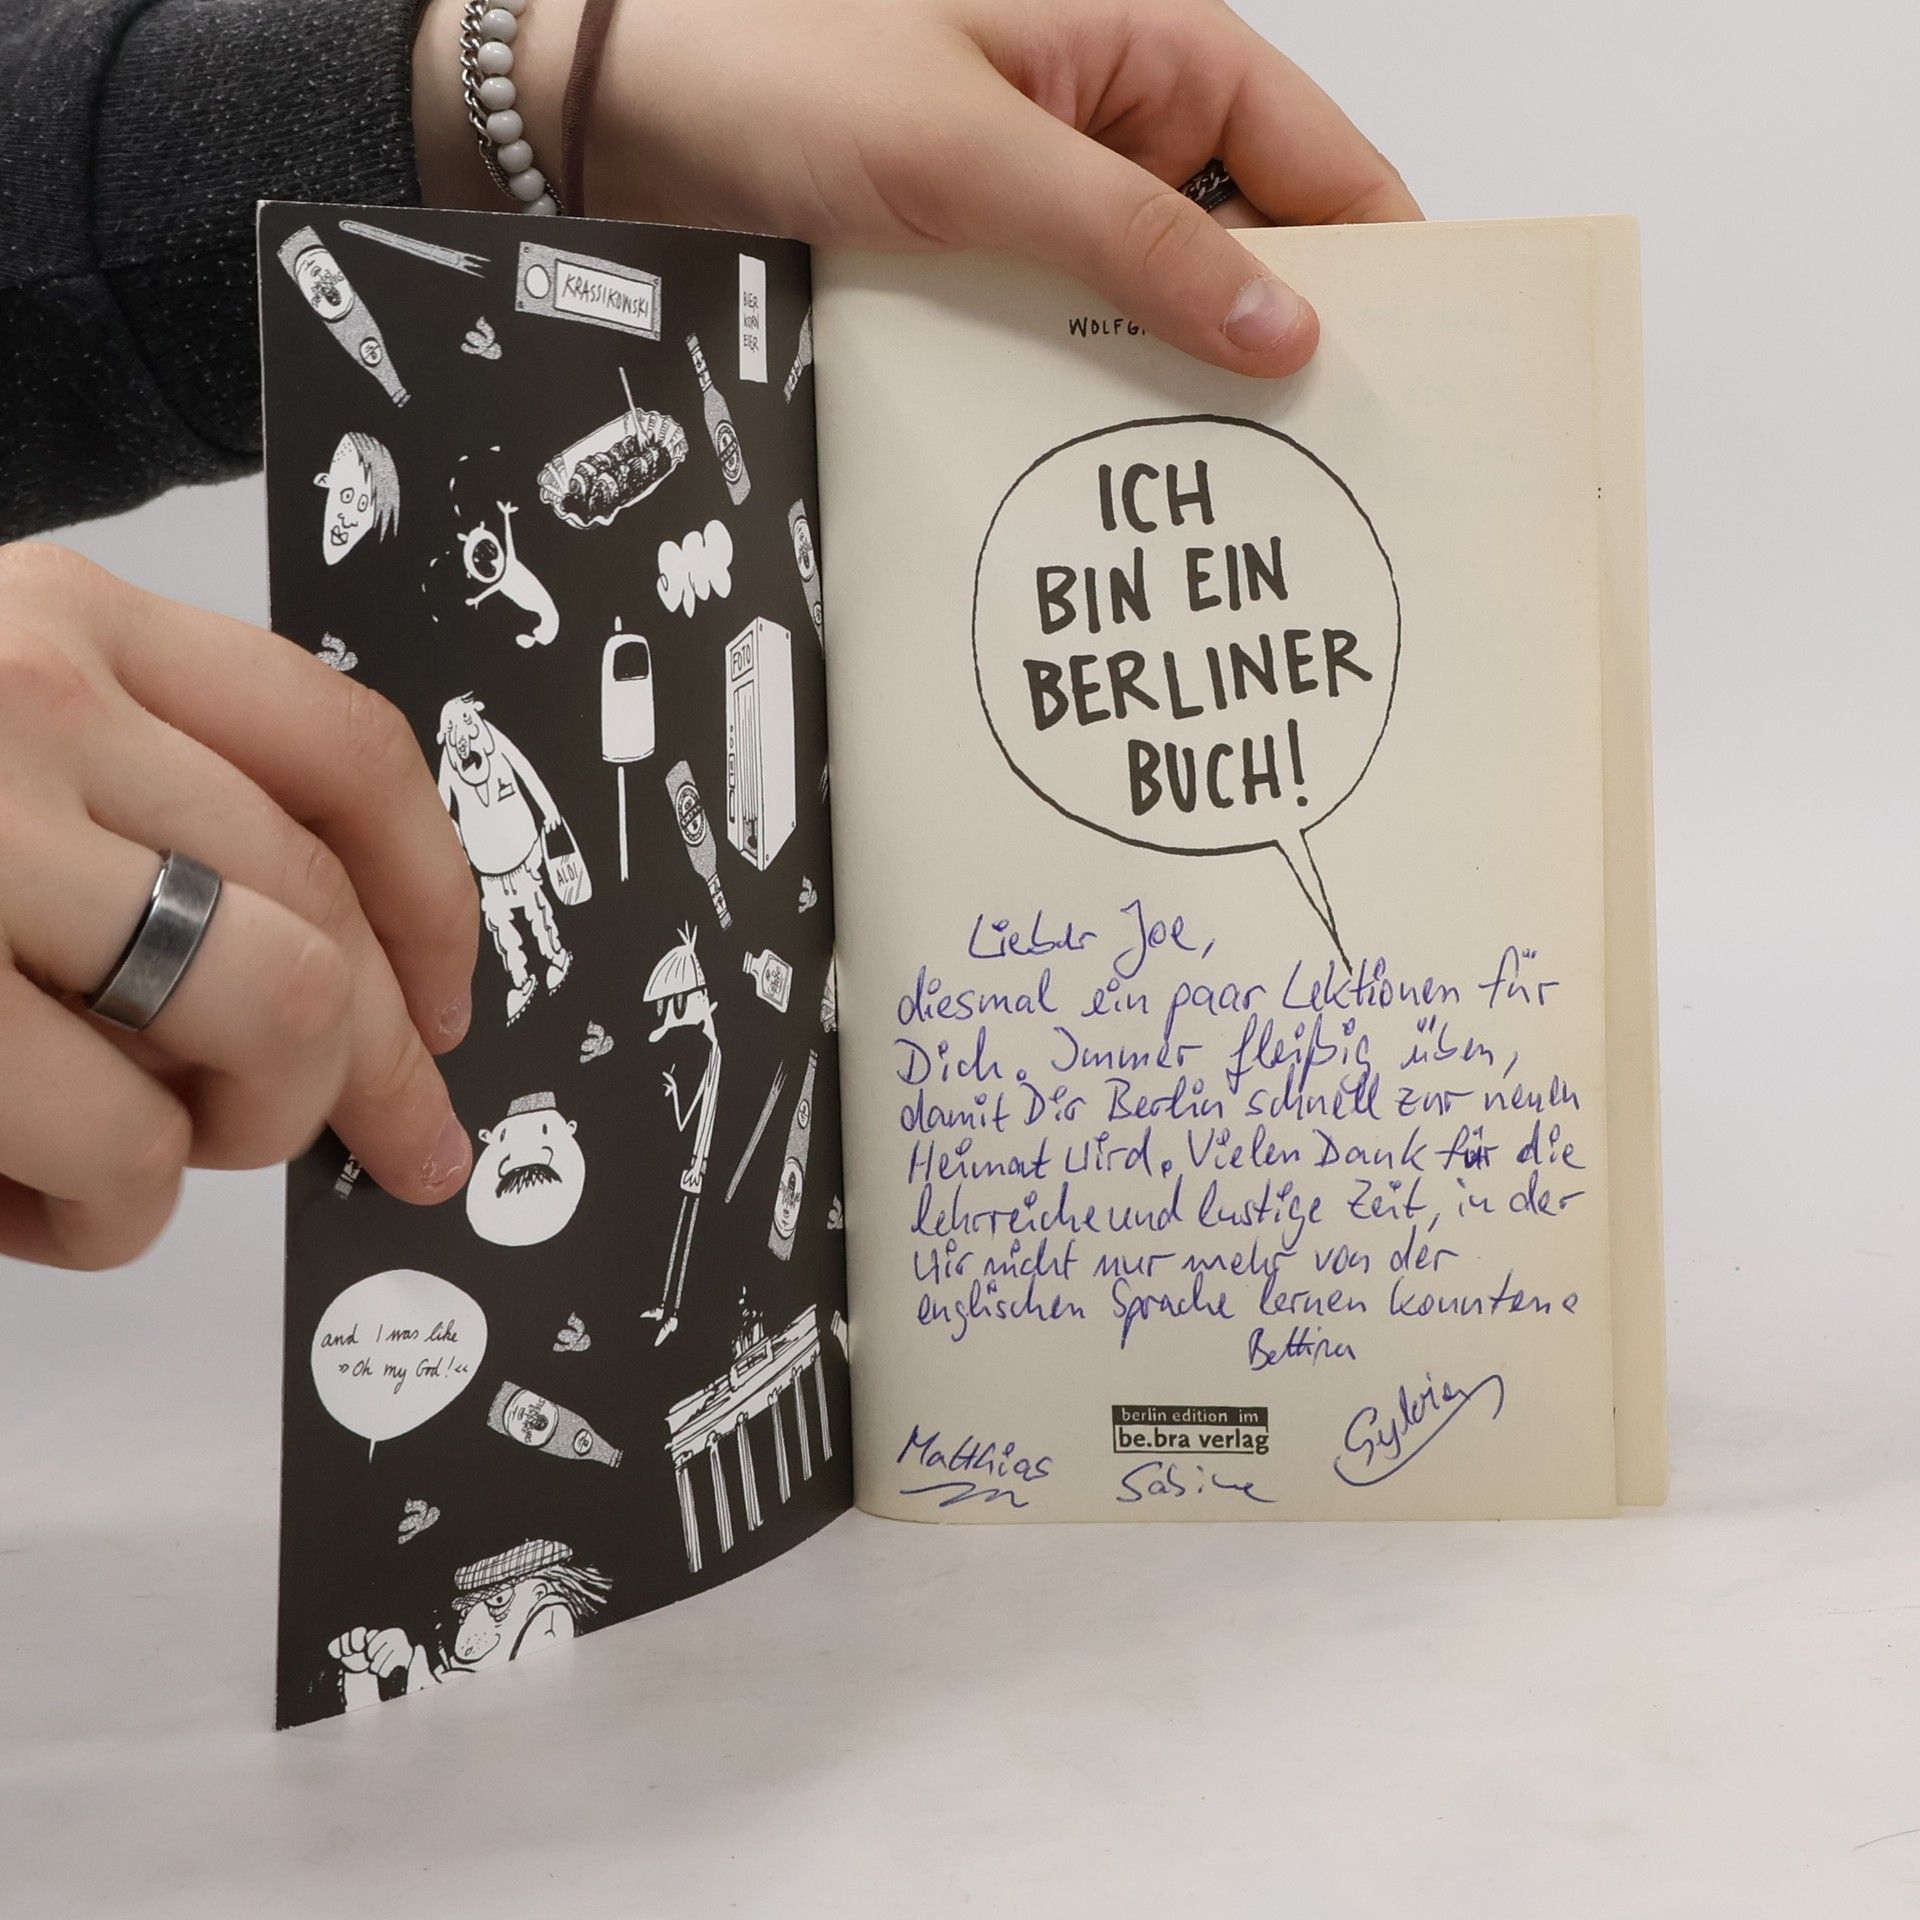 KRASSIKOWSKI
BIER
KORN
EIER
FOTO
ALDI
and I was like
»Oh my God!«
WOLFG
ICH
BIN EIN
BERLINER
BUCH!
Lieber Joe,
diesmal ein paar Lektionen für
Dich. Immer fleißig üben,
damit Dir Berlin schnell zur neuen
Heimat wird. Vielen Dank für die
lehrreiche und lustige Zeit, in der
wir nicht nur mehr von der
englischen Sprache lernen konnten.
Bettina
Sylvia
berlin edition im
be.bra verlag
Matthias
Sabine